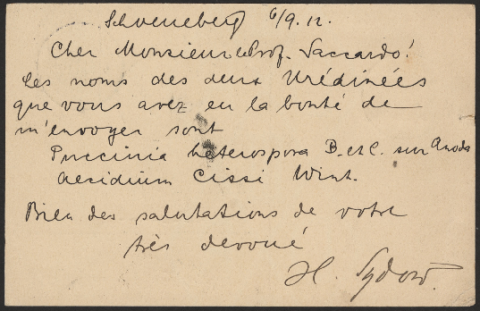 Schoeneberg 6/9. 12.
Cher Monsieur le Prof. Saccardo!
Les noms des deux Urédinées
que vous avez eu la bonté de
m'envoyer sont
Puccinia heterospora B. et C. sur Anoda
Aecidium Cissi Wint.
Bien des salutations de votre
très dévoué
H. Sydow.